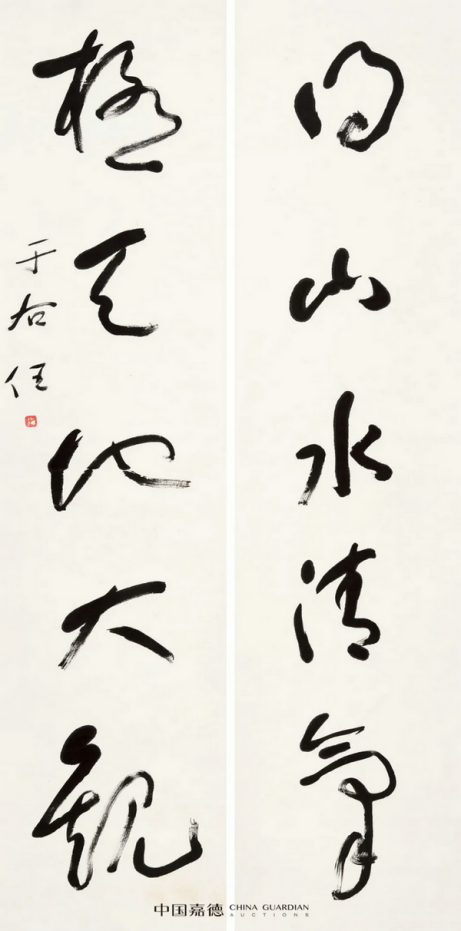 得山水清氣
極天地大觀
于右任
中国嘉德 CHINA GUARDIAN
AUCTIONS